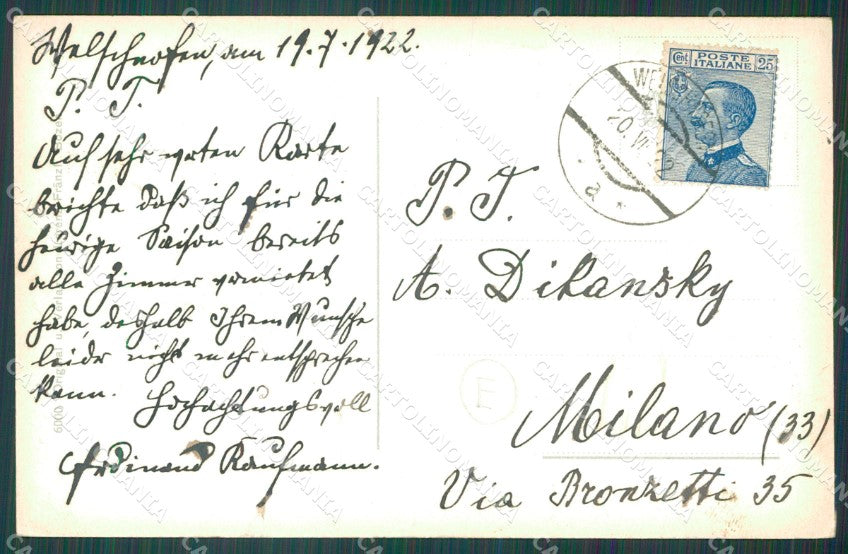 Welschnofen, am 19.7.1922.
P. T.
Auf sehr werten Karte
brichte daß ich für die
heurige Saison bereits
alle Zimmer vermietet
habe, deshalb Ihrem Wunsche
leider nicht mehr entsprechen
kann. Hochachtungsvoll
Ferdinand Kaufmann.
POSTE
ITALIANE
Cent 25
20. VII. 22
a
P. T.
A. Dikansky
Milano (33)
Via Bronzetti 35
E
6000
CARTOLINOMANIA